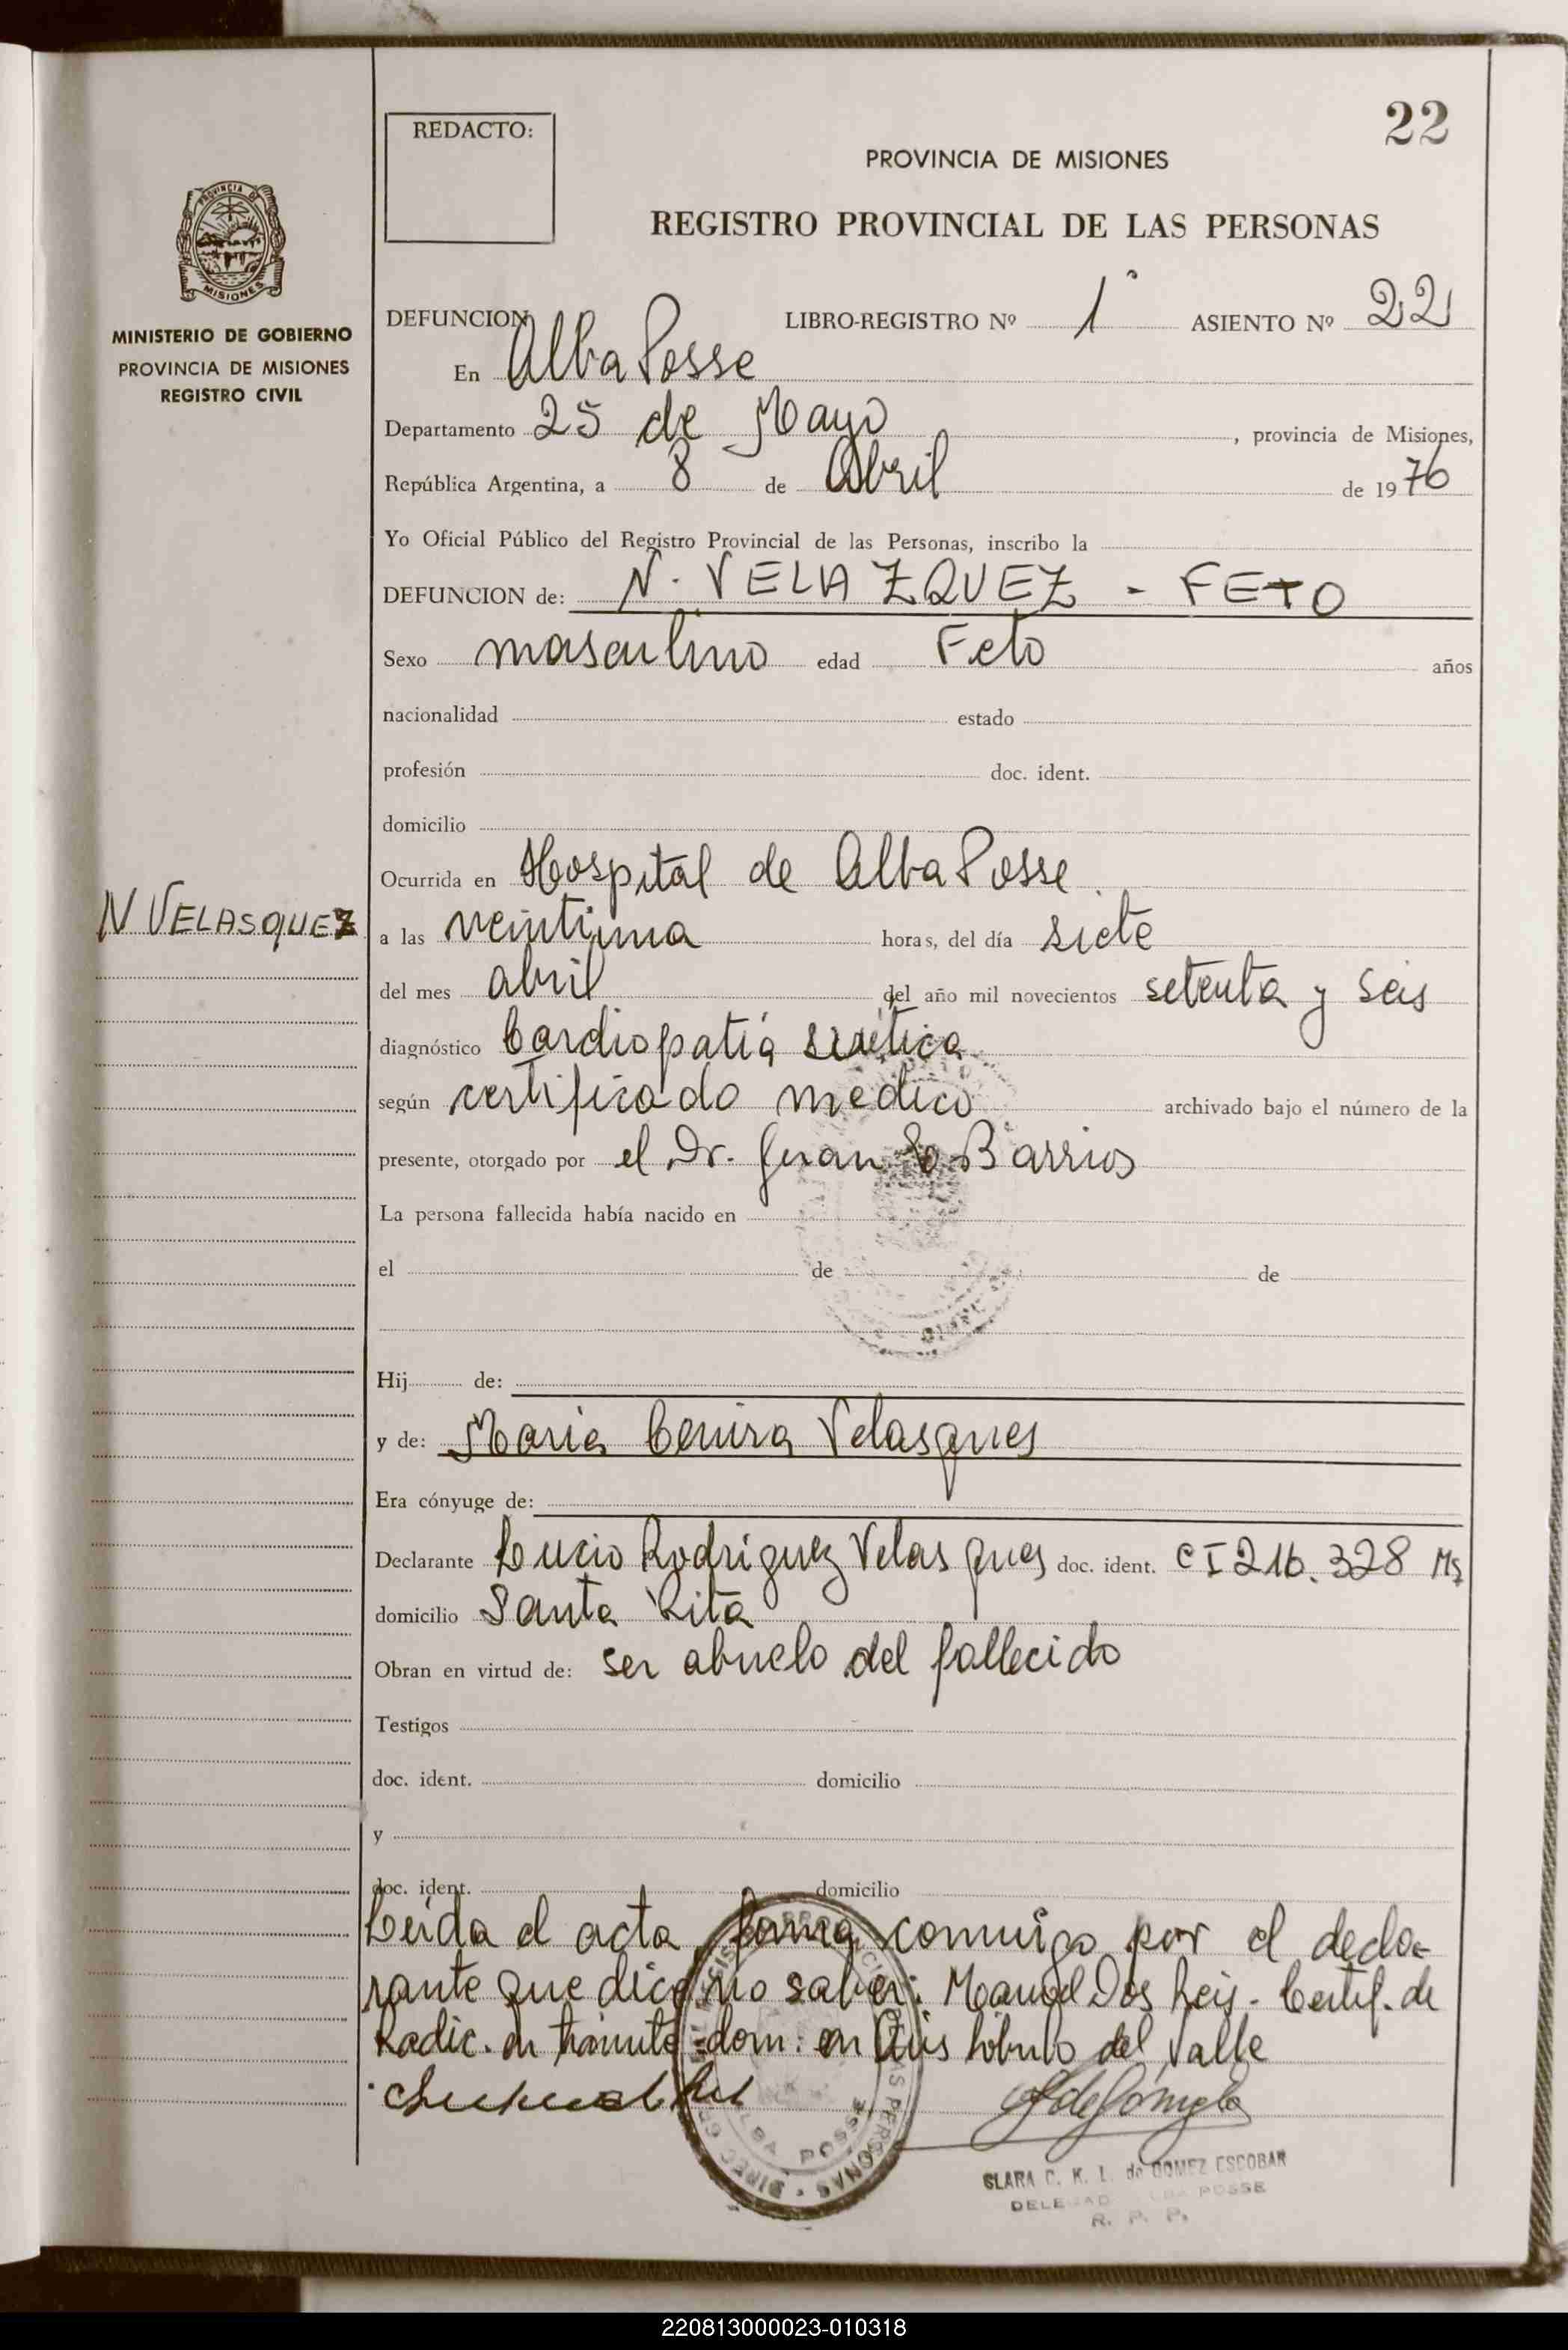 22
REDACTO:
PROVINCIA DE MISIONES
REGISTRO PROVINCIAL DE LAS PERSONAS
PROVINCIA DE
MISIONES
MINISTERIO DE GOBIERNO
PROVINCIA DE MISIONES
REGISTRO CIVIL
DEFUNCION LIBRO-REGISTRO Nº 1° ASIENTO Nº 22
En Alba Posse
Departamento 25 de Mayo, provincia de Misiones,
República Argentina, a 8 de Abril de 1976
Yo Oficial Público del Registro Provincial de las Personas, inscribo la
DEFUNCION de: N. VELAZQUEZ - FETO
Sexo masculino edad Feto años
nacionalidad estado
profesión doc. ident.
domicilio
Ocurrida en Hospital de Alba Posse
N VELASQUEZ
a las veintiuna horas, del día siete
del mes abril del año mil novecientos setenta y seis
diagnóstico Cardiopatía
según certificado medico archivado bajo el número de la
presente, otorgado por el Dr. Juan Barrios
La persona fallecida había nacido en
el de de
Hij de:
y de: Maria Cenira Velasques
Era cónyuge de:
Declarante Lucio Rodriguez Velasques doc. ident. CI 216.328 Ms
domicilio Santa Rita
Obran en virtud de: ser abuelo del fallecido
Testigos
doc. ident. domicilio
y
doc. ident. domicilio
Leida el acta, firma conmigo por el decla-
rante que dice no saber: Manuel Dos Reis - Certif. de
Radic. en tramite - dom: en del Valle
CLARA C. K. L. de GOMEZ ESCOBAR
POSSE
R. P. P.
ALBA POSSE
220813000023-010318